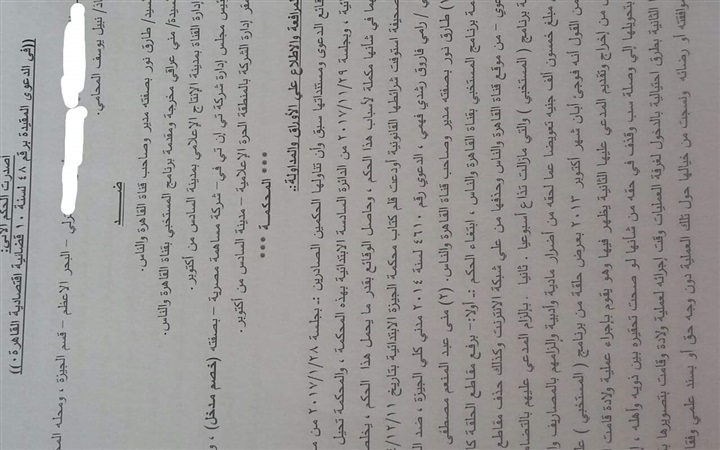 أصدرت الحكم الآتي:
((في الدعوى المقيدة برقم ٤٨ لسنة ١٠ قضائية اقتصادية القاهرة:))
– البحر الأعظم – قسم الجيزة ، ومحله
نبيل يوسف المحامي.
ضــد
السيد/ طارق نور بصفته مدير وصاحب قناة القاهرة والناس.
السيدة/ منى عراقي مخرجة ومقدمة برنامج المستخبي بقناة القاهرة والناس.
رئيس مجلس إدارة شركة تي إن تي في– شركة مساهمة مصرية – بصفته (خصم مدخل) ،
إدارة القناة بمدينة الإنتاج الإعلامي بمدينة السادس من أكتوبر.
مقر إدارة الشركة بالمنطقة الحرة الإعلامية – مدينة السادس من أكتوبر.
*** المحكمــة ***
المرافعة والاطلاع علي الأوراق والمداولة:.
وقائع الدعوى ومستنداتها سبق وأن تناولها الحكمين الصادرين :. بجلسة ٢٠١٧/١/٢٨ من
، وبجلسة ٢٠١٧/١١/٢٩ من الدائرة السادسة الابتدائية بهذه المحكمة ، والمحكمة تحيل
في شأنها مكملة لأسباب هذا الحكم ، وحاصل الوقائع بقدر ما يحمل هذا الحكم ،
صحيفة استوفت شرائطها القانونية أودعت قلم كتاب محكمة الجيزة الابتدائية بتاريخ
/ رامي فاروق رشدي فهمي ، الدعوي رقم ٤٦١٠ لسنة ٢٠١٤ مدني كلي الجيزة ، ضد
(١) طارق نور بصفته مدير وصاحب قناة القاهرة والناس. (٢) منى عبد المنعم مصطفى
برنامج المستخبي بقناة القاهرة والناس ، ابتغاء الحكم :. أولا:– برفع مقاطع الحلقة
– من موقع قناة القاهرة والناس وحذفها من علي شبكة الانترنت وكذلك حذف مقاطع
برنامج ( المستخبي ) والتي مازالت تذاع أسبوعيا . ثانيا . بإلزام المدعي عليهم بالتضامن
مبلغ خمسون ألف جنيه تعويضا عما لحقه من أضرار مادية وأدبية وإلزامهم بالمصاريف
من القول أنه فوجئ أبان شهر أكتوبر ٢٠١٣ بعرض حلقة من برنامج ( المستخبي )
من إخراج وتقديم المدعي عليها الثانية يظهر فيها وهو يقوم بإجراء عملية ولادة قامت
الثانية بطرق احتيالية بالدخول لغرفة العمليات وقت إجرائه لعملية ولادة وقامت بتصويرها
بتحويلها إلي وصلة سب وقذف في حقه من شأنها لو صحت تحقيره بين ذويه وأهله ،
موافقته أو رضائه ونسجت من خيالها حول تلك العملية دون وجه حق أو بسند علمي وفقا